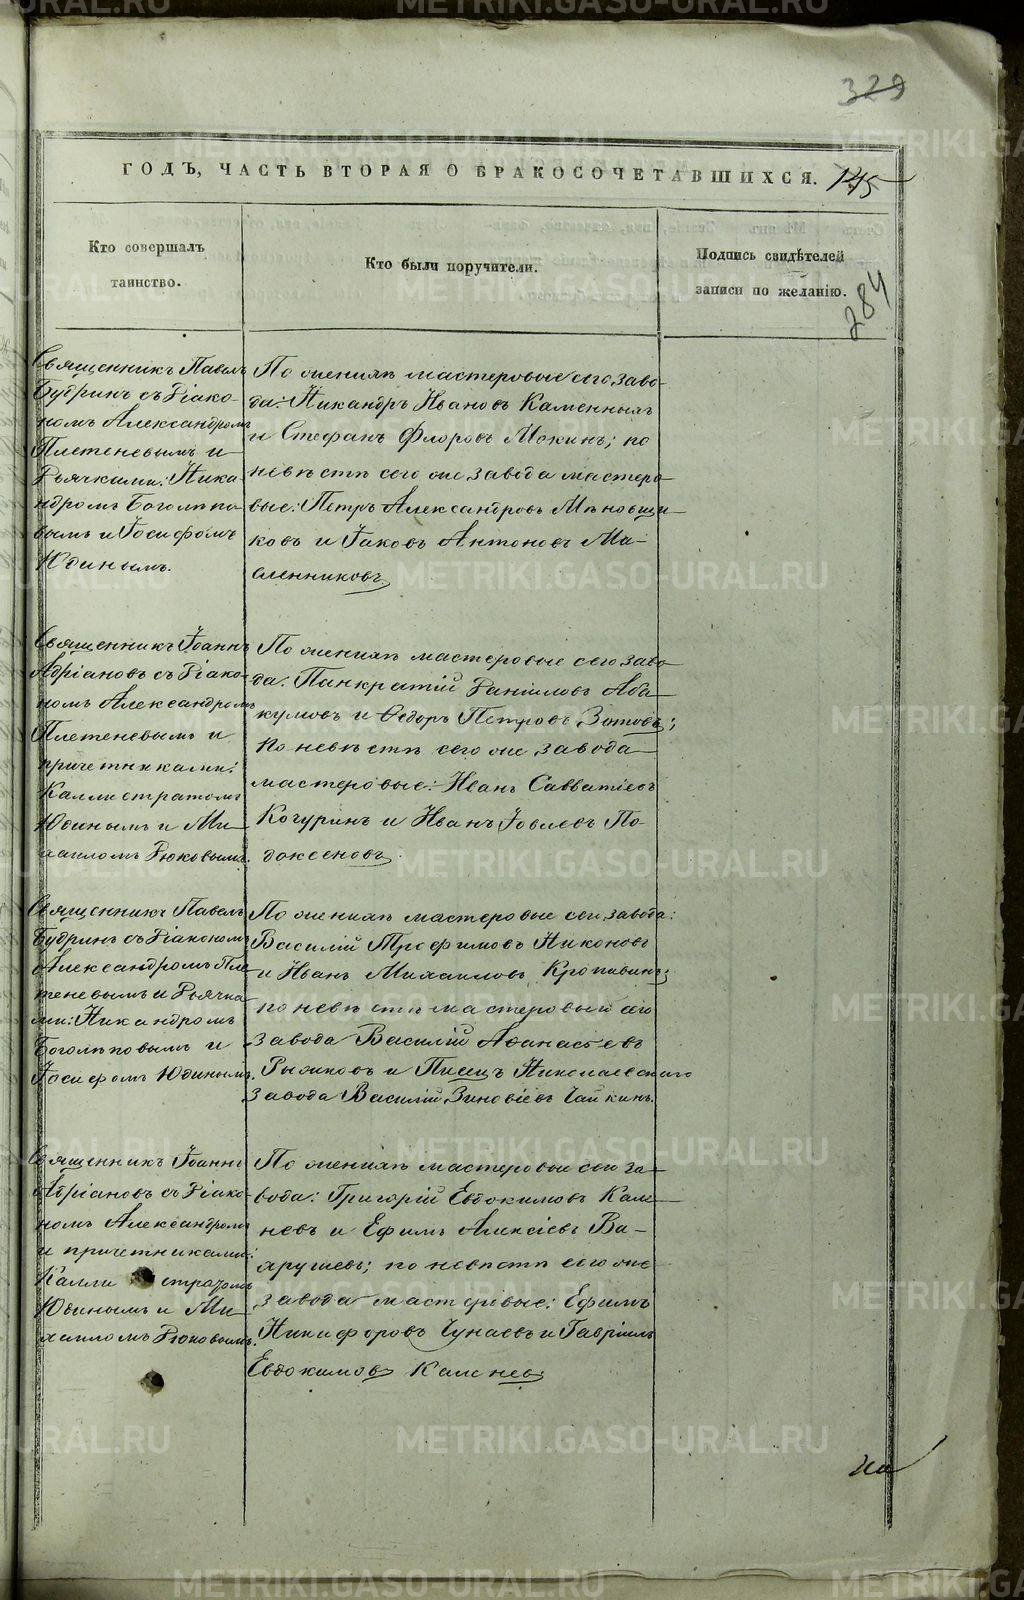 329
ГОДЪ, ЧАСТЬ ВТОРАЯ О БРАКОСОЧЕТАВШИХСЯ.
145
Кто совершалъ
таинство.
Кто были поручители.
Подпись свидѣтелей
записи по желанію.
284
Священникъ Павелъ
Будринъ съ Діако-
номъ Александромъ
Плетеневымъ и
Дьячками: Ника-
ндромъ Боголѣпо-
вымъ и Іосифомъ
Юдинымъ.
По женихѣ мастеровые сего заво-
да: Никандръ Ивановъ Каменныхъ
и Стефанъ Флоровъ Мокинъ; по
невѣстѣ сего же завода мастеро-
вые: Петръ Александровъ Мѣновщи-
ковъ и Іаковъ Антоновъ Ма-
сленниковъ.
Священникъ Іоаннъ
Адріановъ съ Діако-
номъ Александромъ
Плетеневымъ и
причетниками:
Каллистратомъ
Юдинымъ и Ми-
хаиломъ Рюковымъ.
По женихѣ мастеровые сего заво-
да: Панкратій Даніиловъ Аба-
кумовъ и Ѳедоръ Петровъ Зотовъ;
по невѣстѣ сего же завода
мастеровые: Иванъ Савватіевъ
Кочуринъ и Иванъ Іовлевъ По-
доксеновъ.
Священникъ Павелъ
Будринъ съ Діакономъ
Александромъ Пле-
теневымъ и Дьячка-
ми: Никандромъ
Боголѣповымъ и
Іосифомъ Юдинымъ.
По женихѣ мастеровые сего завода:
Василій Трофимовъ Никоновъ
и Иванъ Михаиловъ Кропивинъ;
по невѣстѣ мастеровый сего
завода Василій Аѳанасьевъ
Рыжковъ и Писецъ Николаевскаго
завода Василій Зиновіевъ Чайкинъ.
Священникъ Іоаннъ
Адріановъ съ Діако-
номъ Александромъ
и причетниками:
Каллистратомъ
Юдинымъ и Ми-
хаиломъ Рюковымъ.
По женихѣ мастеровые сего за-
вода: Григорій Евдокимовъ Кале-
невъ и Ефимъ Алексіевъ Ва-
ярушевъ; по невѣстѣ сего же
завода мастеровые: Ефимъ
Никифоровъ Чунаевъ и Гавріилъ
Евдокимовъ Каленевъ
METRIKI.GASO-URAL.RU